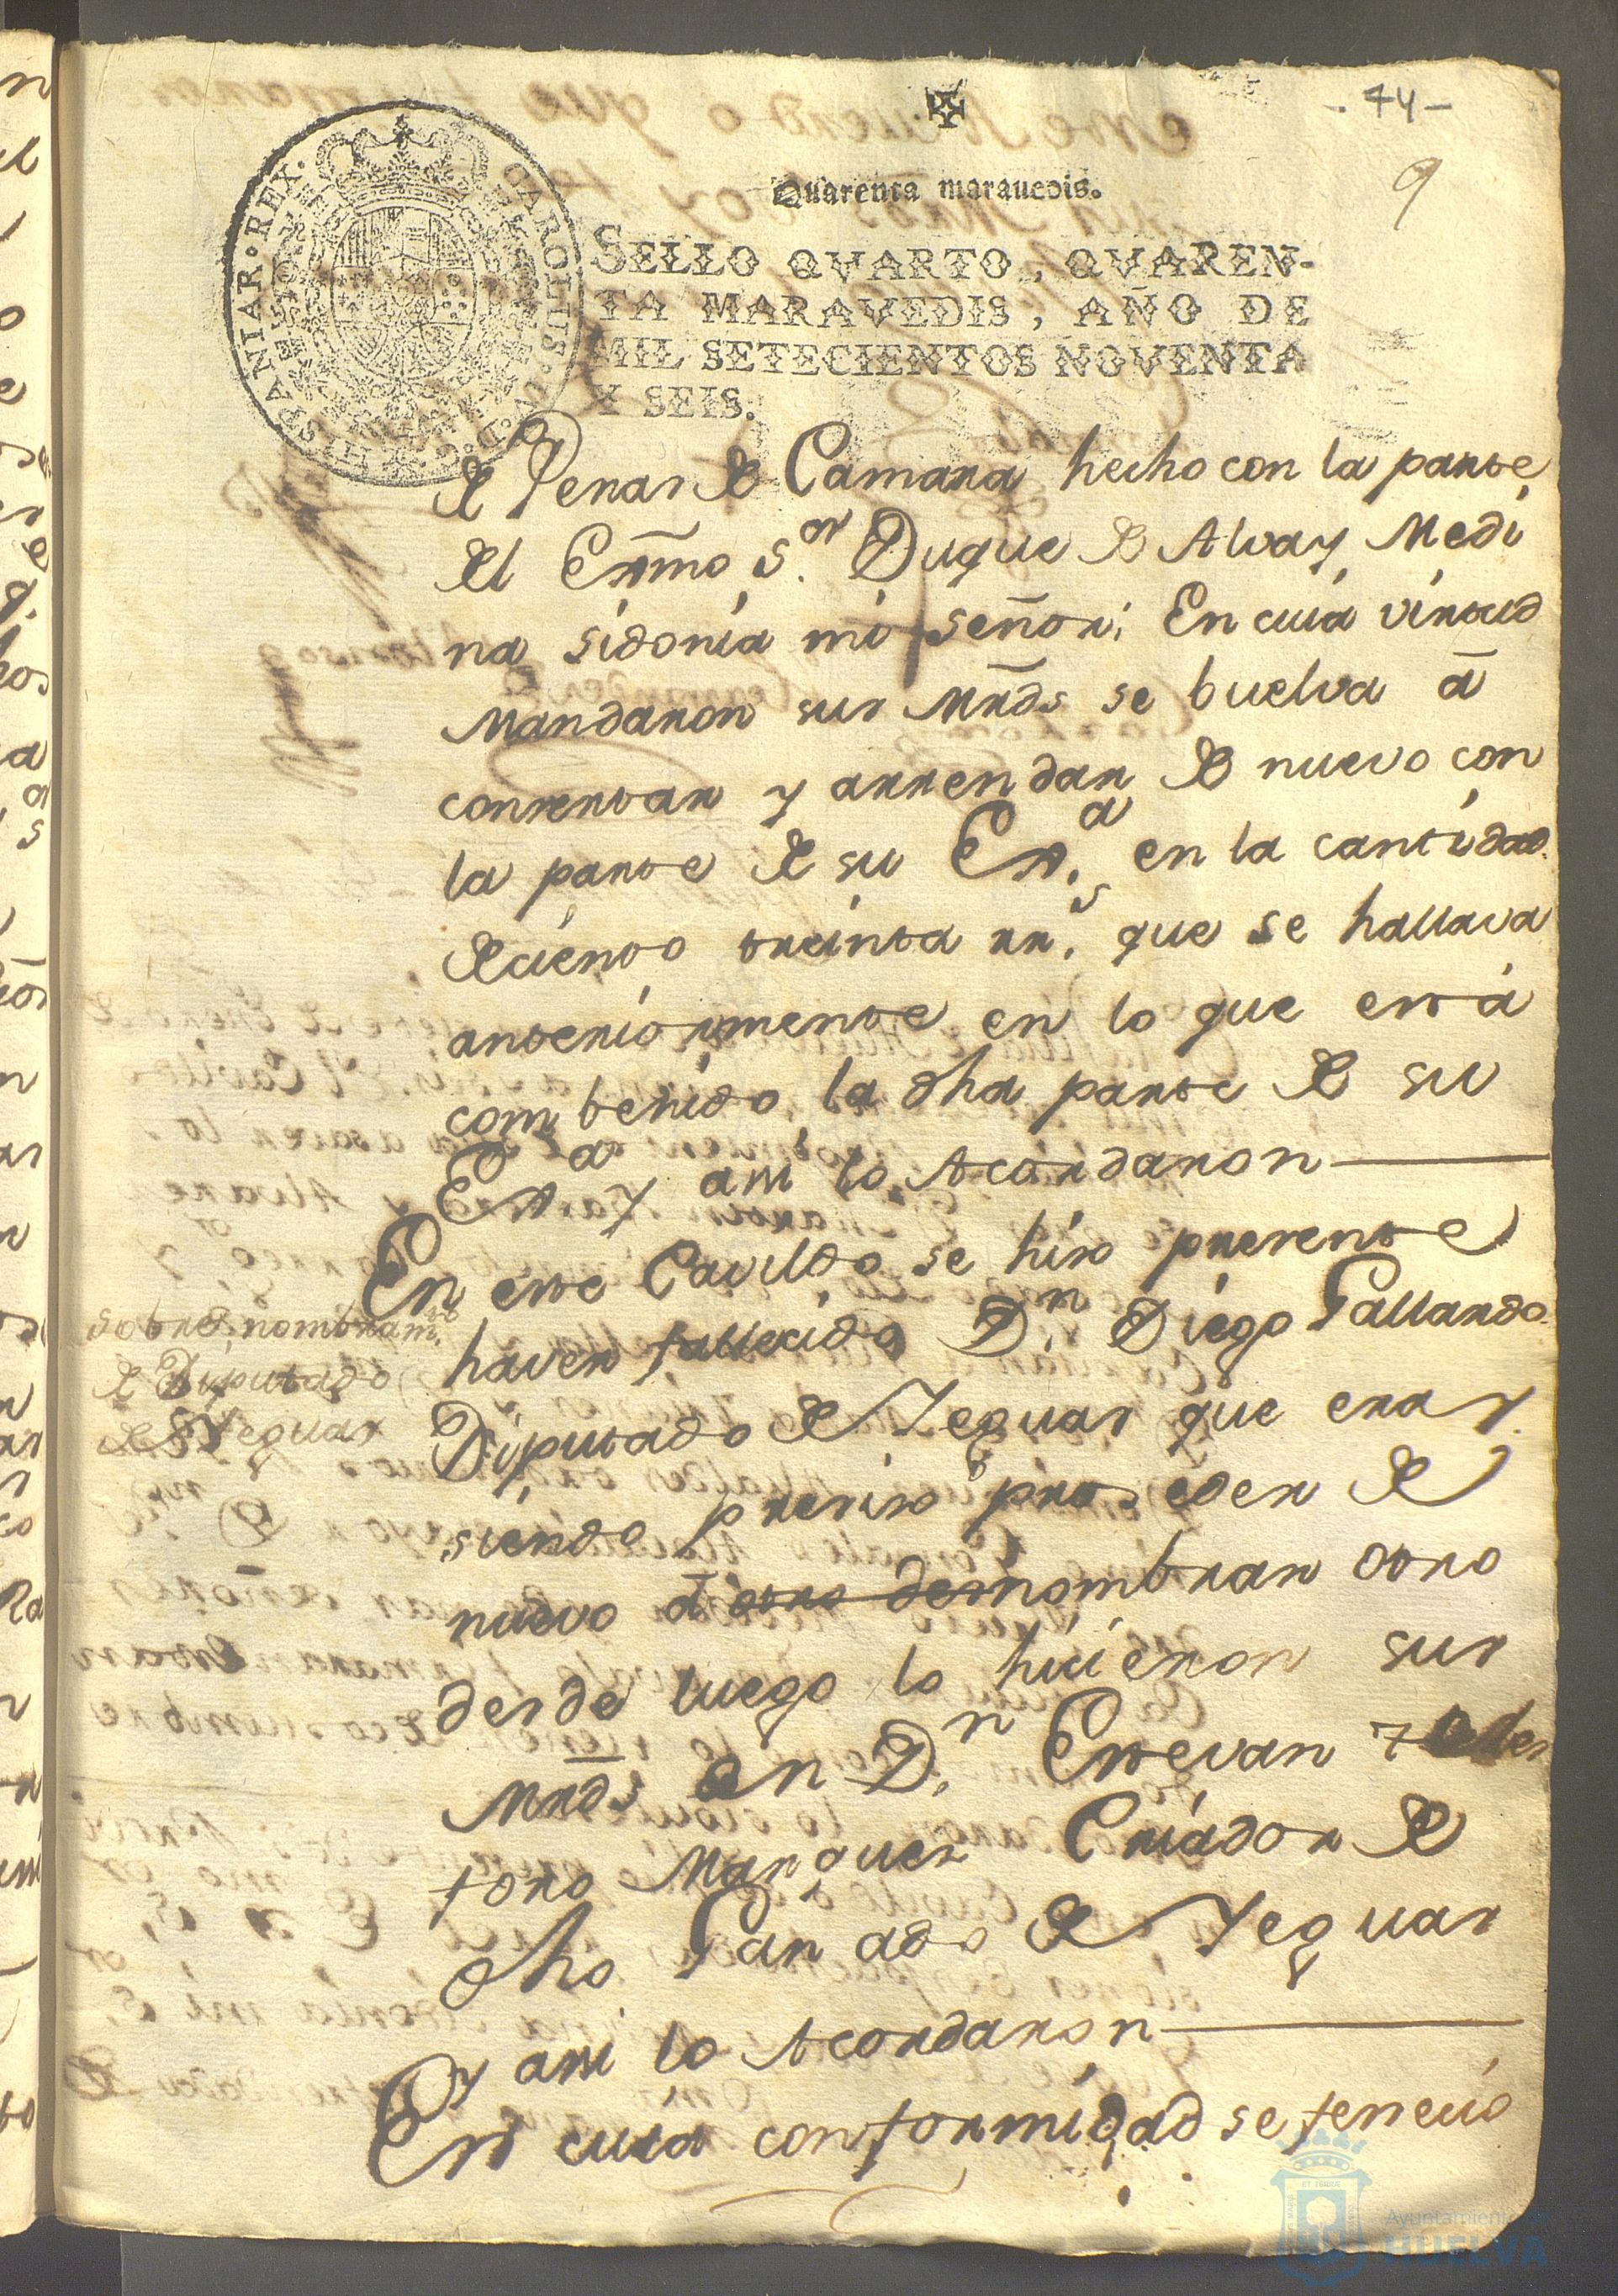 - 74 -
9
Quarenta marauedis.
SELLO QVARTO, QVAREN-
TA MARAVEDIS, AÑO DE
MIL SETECIENTOS NOVENTA
Y SEIS.
CAROLUS IV D G HISPANIAR REX
de Penas de Camara hecho con la parte
del Exmõ S.or Duque de Alva y Medi
na sidonia mi señor; En cuia virtud
Mandaron sus Mrds se buelva ā
consertar y arrendar de nuevo con
la parte de su Ex.a en la cantidad
de ciento treinta rr.s que se hallava
anteriormente en lo que está
combenido la dha parte de su
Ex.a y asi lo Acordaron
En este Cavildo se hiso presente
haver fallecido D.n Diego Gallardo
Diputado de Yeguas que era y
siendo presiso proseder de
nuevo ā otro des nombrar otro
desde luego lo hicieron sus
Mrds en D.n Estevan
toro Marques Criador de
dho Ganado de Yeguas
y asi lo Acordaron
En cuia conformidad se fenecio
sobre nombram.to
de Diputado
de Yeguas
Ayuntamiento de
HUELVA